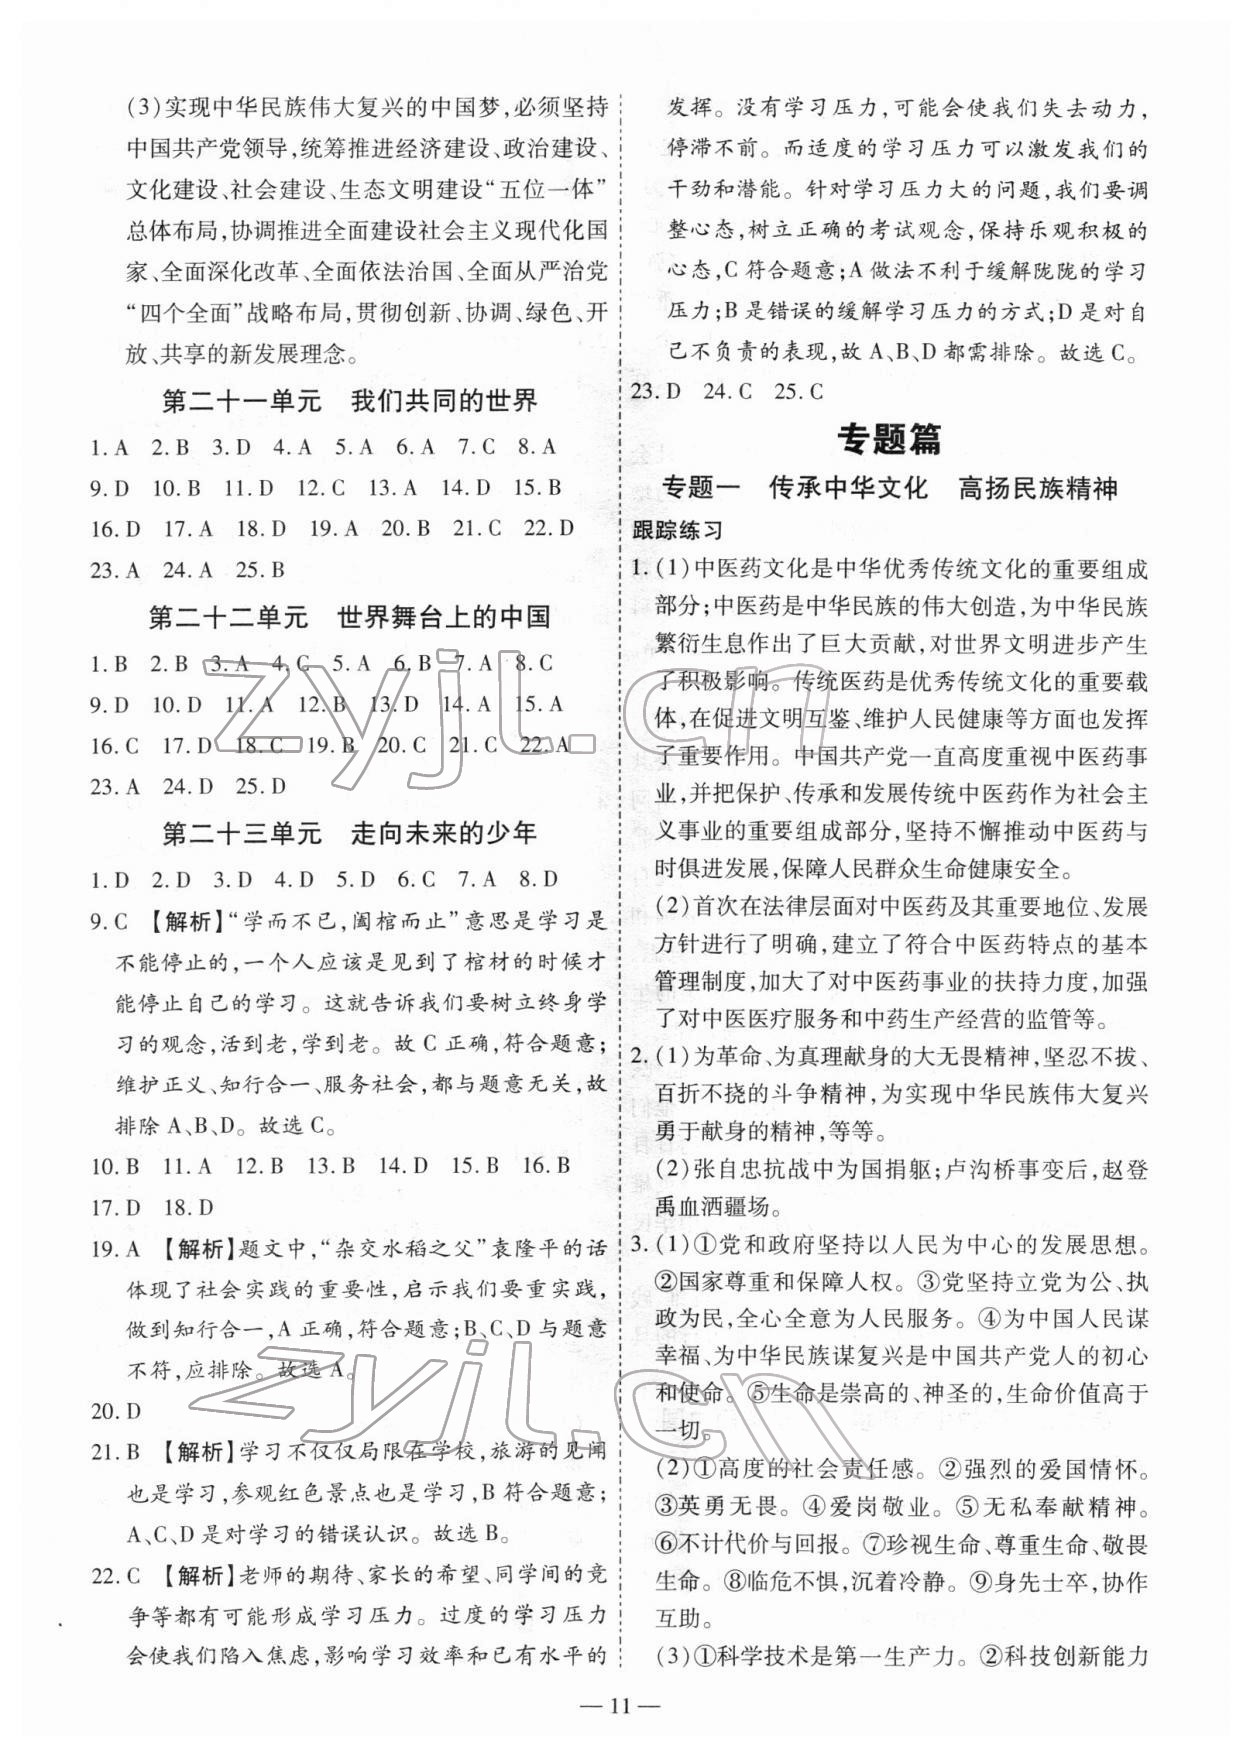 (3)实现中华民族伟大复兴的中国梦,必须坚持
中国共产党领导,统筹推进经济建设、政治建设、
文化建设、社会建设、生态文明建设“五位一体”
总体布局,协调推进全面建设社会主义现代化国
家、全面深化改革、全面依法治国、全面从严治党
“四个全面”战略布局,贯彻创新、协调、绿色、开
放、共享的新发展理念。
第二十一单元 我们共同的世界
1. A 2. B 3. D 4. A 5. A 6. A 7. C 8. A
9. D 10. B 11. D 12. C 13. A 14. D 15. B
16. D 17. A 18. D 19. A 20. B 21. C 22. D
23. A 24. A 25. B
第二十二单元 世界舞台上的中国
1. B 2. B 3. A 4. C 5. A 6. B 7. A 8. C
9. D 10. D 11. A 12. B 13. A 14. A 15. A
16. C 17. D 18. C 19. B 20. C 21. C 22. A
23. A 24. D 25. D
第二十三单元 走向未来的少年
1. D 2. D 3. D 4. D 5. D 6. C 7. A 8. D
9. C 【解析】“学而不已,阖棺而止”意思是学习是
不能停止的,一个人应该是见到了棺材的时候才
能停止自己的学习。这就告诉我们要树立终身学
习的观念,活到老,学到老。故 C 正确,符合题意;
维护正义、知行合一、服务社会,都与题意无关,故
排除 A、B、D。故选 C。
10. B 11. A 12. B 13. B 14. D 15. B 16. B
17. D 18. D
19. A 【解析】题文中,“杂交水稻之父”袁隆平的话
体现了社会实践的重要性,启示我们要重实践,
做到知行合一,A 正确,符合题意;B、C、D 与题意
不符,应排除。故选 A。
20. D
21. B 【解析】学习不仅仅局限在学校,旅游的见闻
也是学习,参观红色景点也是学习,B 符合题意;
A、C、D 是对学习的错误认识。故选 B。
22. C 【解析】老师的期待、家长的希望、同学间的竞
争等都有可能形成学习压力。过度的学习压力
会使我们陷入焦虑,影响学习效率和已有水平的
发挥。没有学习压力,可能会使我们失去动力,
停滞不前。而适度的学习压力可以激发我们的
干劲和潜能。针对学习压力大的问题,我们要调
整心态,树立正确的考试观念,保持乐观积极的
心态,C 符合题意;A 做法不利于缓解陇陇的学习
压力;B 是错误的缓解学习压力的方式;D 是对自
己不负责的表现,故 A、B、D 都需排除。故选 C。
23. D 24. C 25. C
专题篇
专题一 传承中华文化 高扬民族精神
跟踪练习
1. (1)中医药文化是中华优秀传统文化的重要组成
部分;中医药是中华民族的伟大创造,为中华民族
繁衍生息作出了巨大贡献,对世界文明进步产生
了积极影响。传统医药是优秀传统文化的重要载
体,在促进文明互鉴、维护人民健康等方面也发挥
了重要作用。中国共产党一直高度重视中医药事
业,并把保护、传承和发展传统中医药作为社会主
义事业的重要组成部分,坚持不懈推动中医药与
时俱进发展,保障人民群众生命健康安全。
(2)首次在法律层面对中医药及其重要地位、发展
方针进行了明确,建立了符合中医药特点的基本
管理制度,加大了对中医药事业的扶持力度,加强
了对中医医疗服务和中药生产经营的监管等。
2. (1)为革命、为真理献身的大无畏精神,坚忍不拔、
百折不挠的斗争精神,为实现中华民族伟大复兴
勇于献身的精神,等等。
(2)张自忠抗战中为国捐躯;卢沟桥事变后,赵登
禹血洒疆场。
3. (1)①党和政府坚持以人民为中心的发展思想。
②国家尊重和保障人权。③党坚持立党为公、执
政为民,全心全意为人民服务。④为中国人民谋
幸福、为中华民族谋复兴是中国共产党人的初心
和使命。⑤生命是崇高的、神圣的,生命价值高于
一切。
(2)①高度的社会责任感。②强烈的爱国情怀。
③英勇无畏。④爱岗敬业。⑤无私奉献精神。
⑥不计代价与回报。⑦珍视生命、尊重生命、敬畏
生命。⑧临危不惧,沉着冷静。⑨身先士卒,协作
互助。
(3)①科学技术是第一生产力。②科技创新能力
— 11 —
zyjl.cn
zyjl.cn